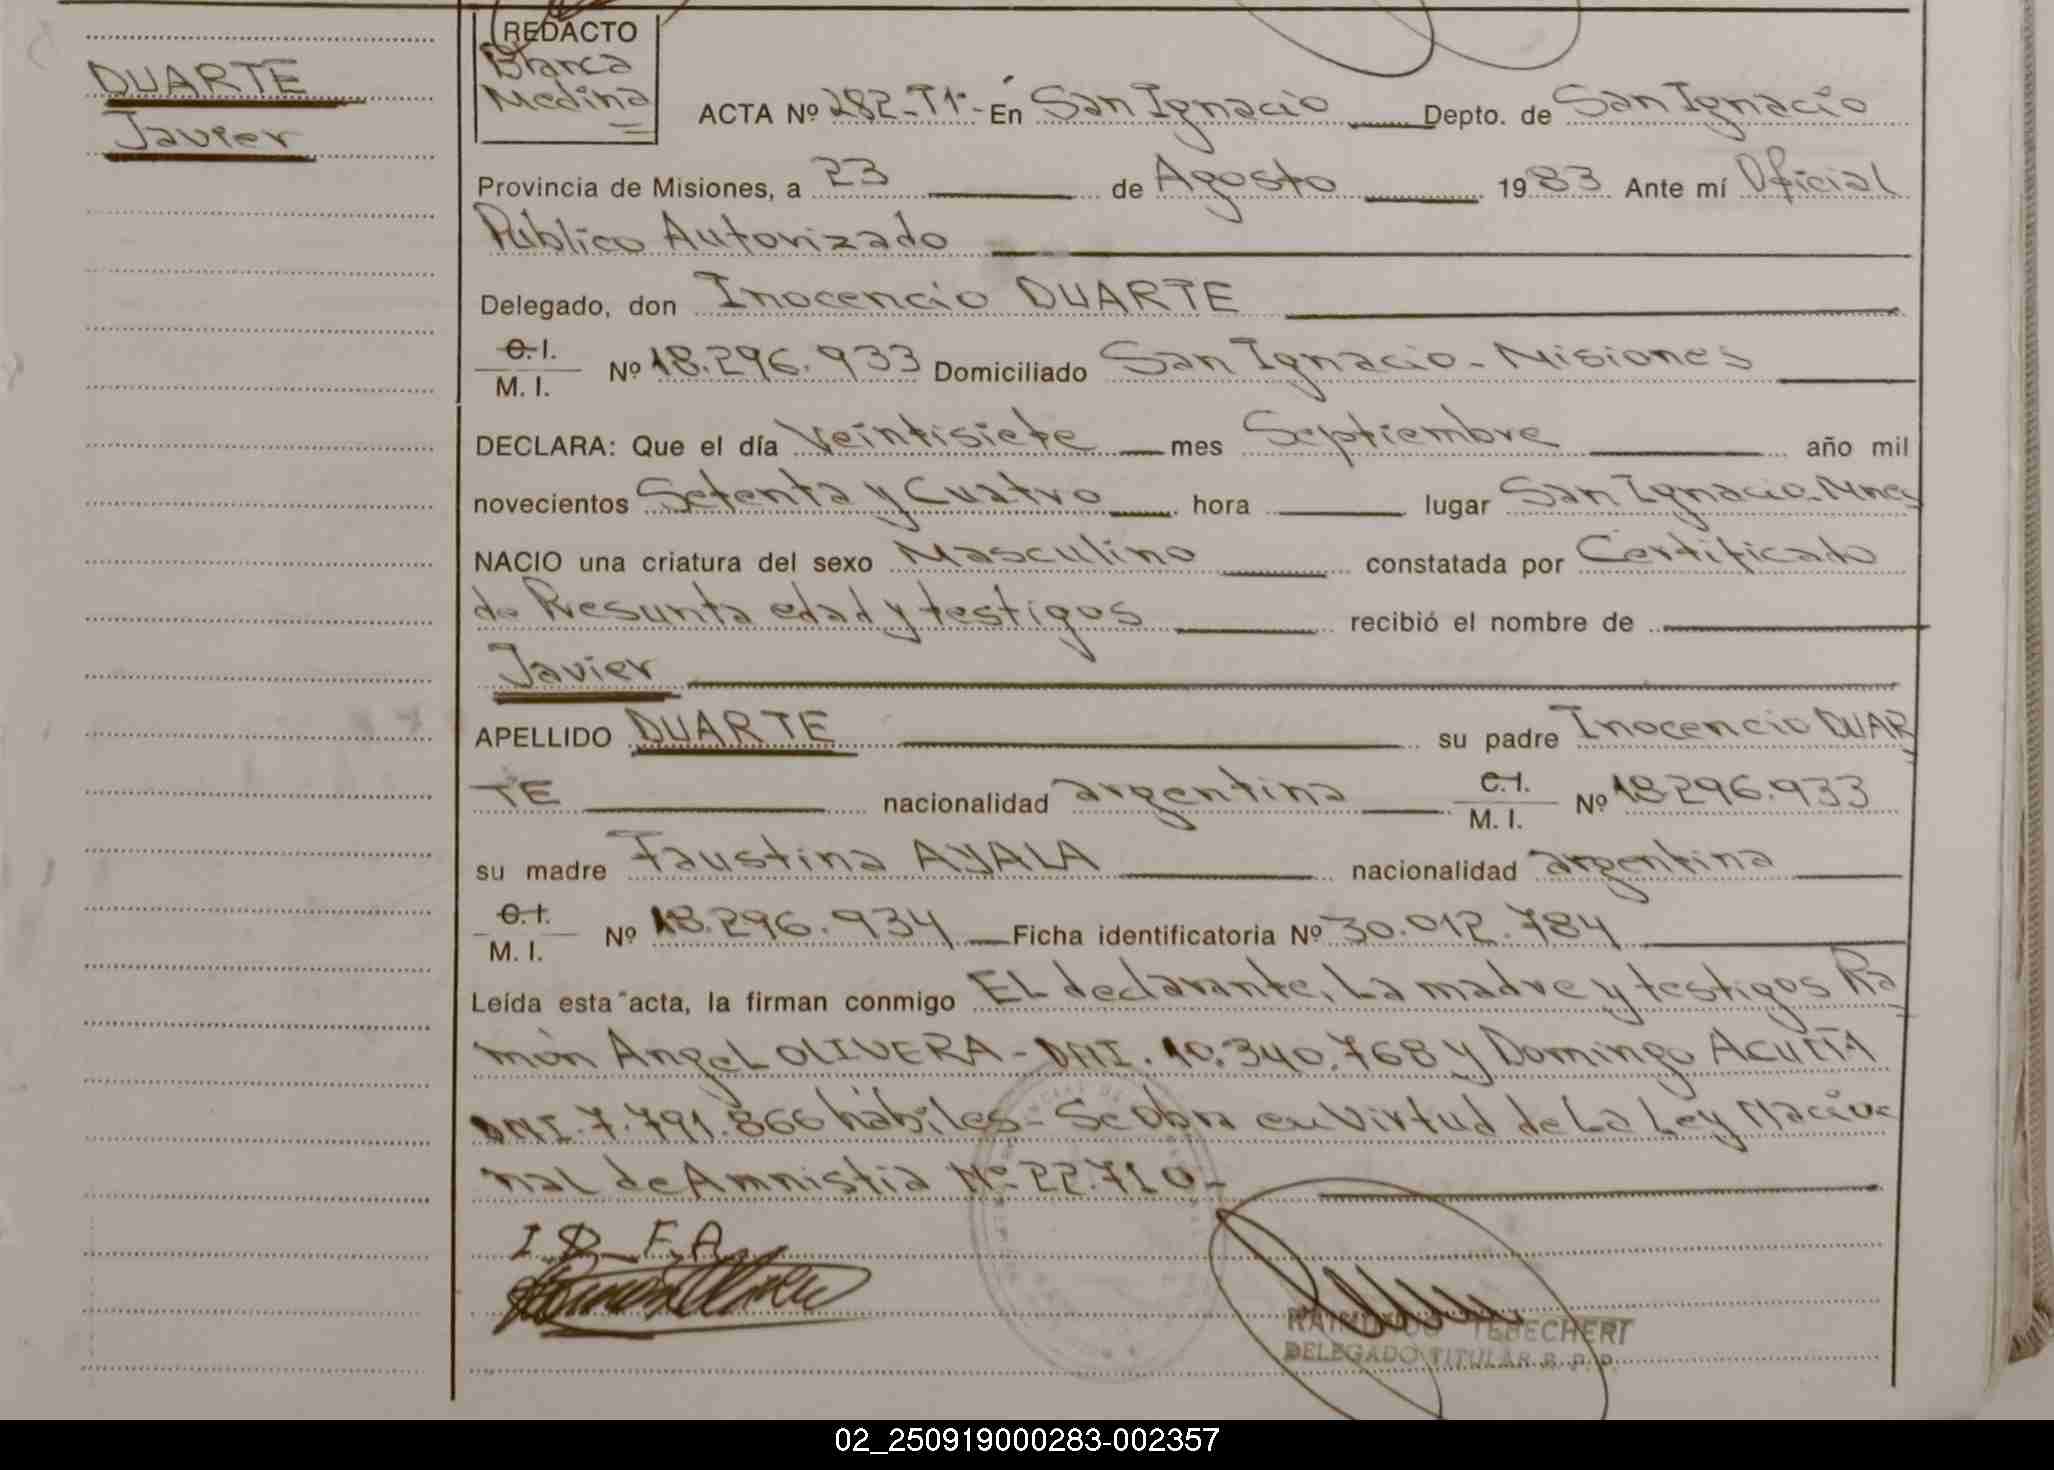 DUARTE
Javier
REDACTO
Blanca
Medina
ACTA Nº 282-T1º- En San Ignacio Depto. de San Ignacio
Provincia de Misiones, a 23 de Agosto 1983 Ante mí Oficial
Público Autorizado
Delegado, don Inocencio DUARTE
C. I.
M. I. Nº 18.296.933 Domiciliado San Ignacio - Misiones
DECLARA: Que el día Veintisiete mes Septiembre año mil
novecientos Setenta y Cuatro hora lugar San Ignacio. Mnes
NACIO una criatura del sexo Masculino constatada por Certificado
de Presunta edad y testigos recibió el nombre de
Javier
APELLIDO DUARTE su padre Inocencio DUAR
TE nacionalidad argentina C. I.
M. I. Nº 18.296.933
su madre Faustina AYALA nacionalidad argentina
C. I.
M. I. Nº 18.296.934 Ficha identificatoria Nº 30.012.784
Leída esta acta, la firman conmigo EL declarante, La madre y testigos Ra
món Angel OLIVERA - DNI. 10.340.768 y Domingo ACUÑA
DNI. 7.791.866 hábiles - Se Obra en Virtud de La Ley Nacio
nal de Amnistia Nº 22.710-
I. D_ F. A.
RAIMUNDO TEBECHERT
DELEGADO TITULAR R. P. P.
02_250919000283-002357